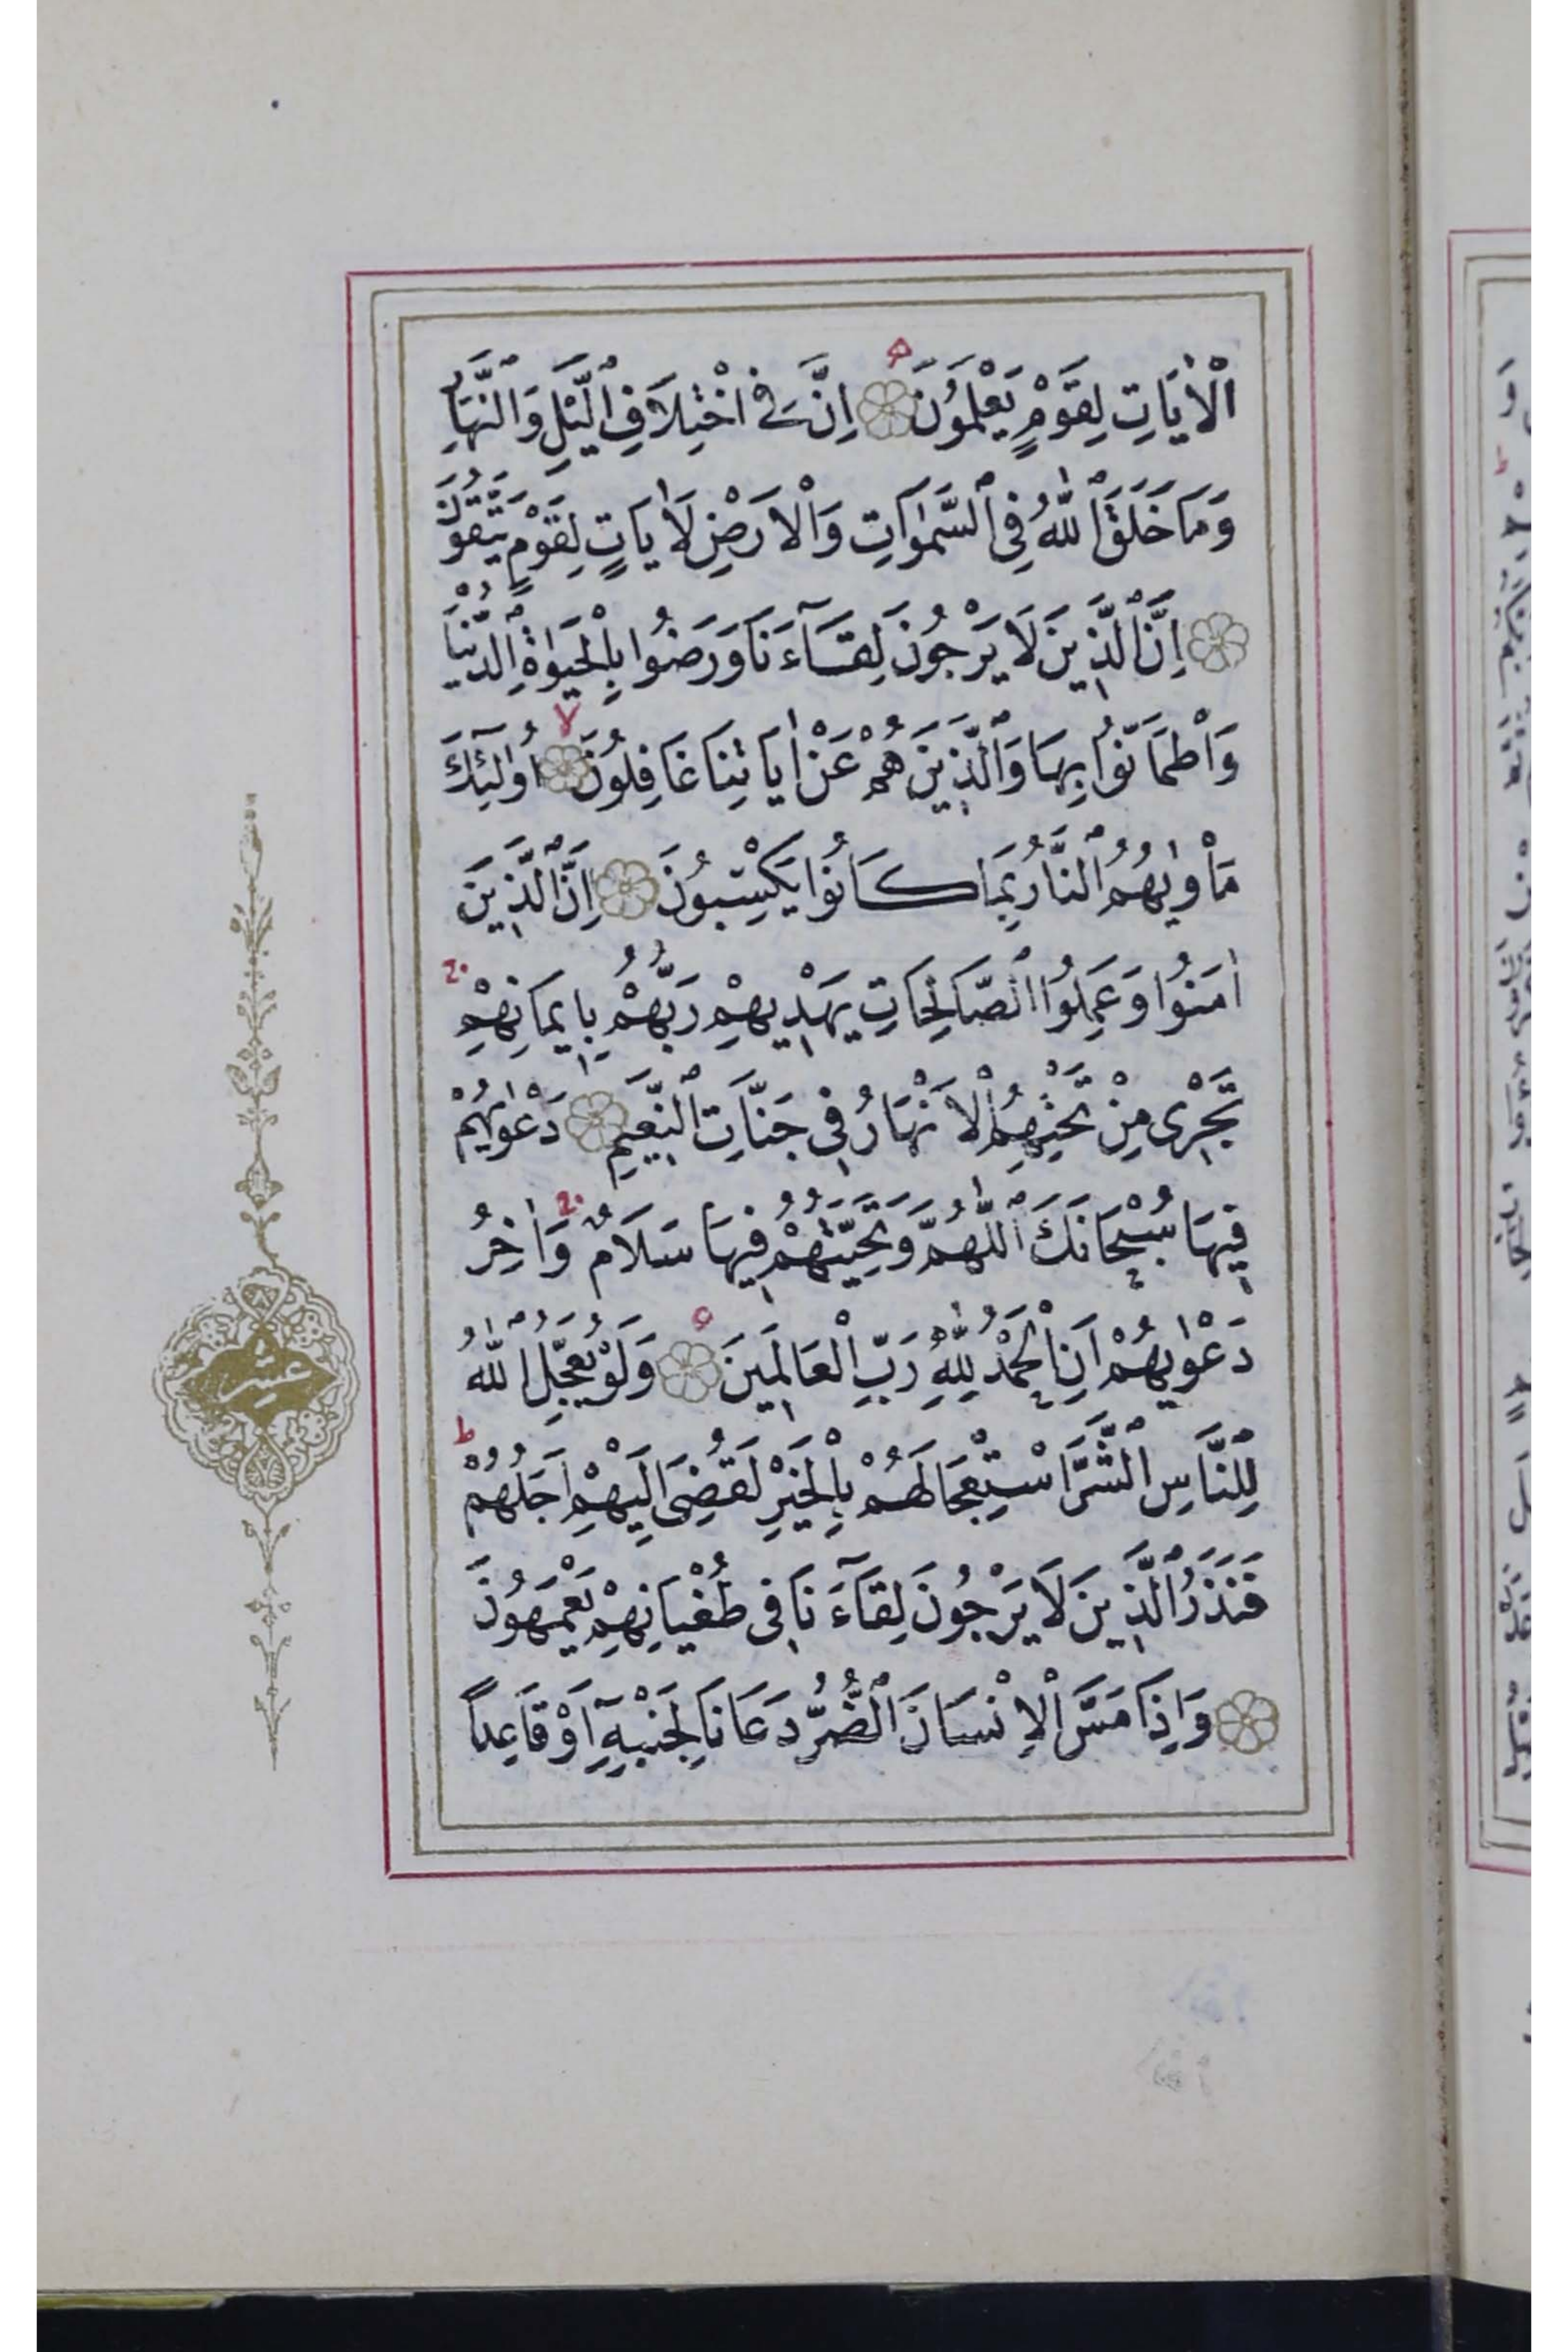 الْاٰيَاتِ لِقَوْمٍ يَعْلَمُونَ ۝ اِنَّ فِى اخْتِلَافِ الَّيْلِ وَالنَّهَارِ
وَمَا خَلَقَ اللّٰهُ فِى السَّمٰوَاتِ وَالْاَرْضِ لَاٰيَاتٍ لِقَوْمٍ يَتَّقُونَ
۝ اِنَّ الَّذِينَ لَا يَرْجُونَ لِقَاۤءَنَا وَرَضُوا بِالْحَيٰوةِ الدُّنْيَا
وَاطْمَاَنُّوا بِهَا وَالَّذِينَ هُمْ عَنْ اٰيَاتِنَا غَافِلُونَ ۝ اُولٰۤئِكَ
مَأْوٰيهُمُ النَّارُ بِمَا كَانُوا يَكْسِبُونَ ۝ اِنَّ الَّذِينَ
اٰمَنُوا وَعَمِلُوا الصَّالِحَاتِ يَهْدِيهِمْ رَبُّهُمْ بِاِيمَانِهِمْ
تَجْرِى مِنْ تَحْتِهِمُ الْاَنْهَارُ فِى جَنَّاتِ النَّعِيمِ ۝ دَعْوٰيهُمْ
فِيهَا سُبْحَانَكَ اللّٰهُمَّ وَتَحِيَّتُهُمْ فِيهَا سَلَامٌ وَاٰخِرُ
دَعْوٰيهُمْ اَنِ الْحَمْدُ لِلّٰهِ رَبِّ الْعَالَمِينَ ۝ وَلَوْ يُعَجِّلُ اللّٰهُ
لِلنَّاسِ الشَّرَّ اسْتِعْجَالَهُمْ بِالْخَيْرِ لَقُضِىَ اِلَيْهِمْ اَجَلُهُمْ ط
فَنَذَرُ الَّذِينَ لَا يَرْجُونَ لِقَاۤءَنَا فِى طُغْيَانِهِمْ يَعْمَهُونَ
۝ وَاِذَا مَسَّ الْاِنْسَانَ الضُّرُّ دَعَانَا لِجَنْبِهِ اَوْ قَاعِدًا
عشر